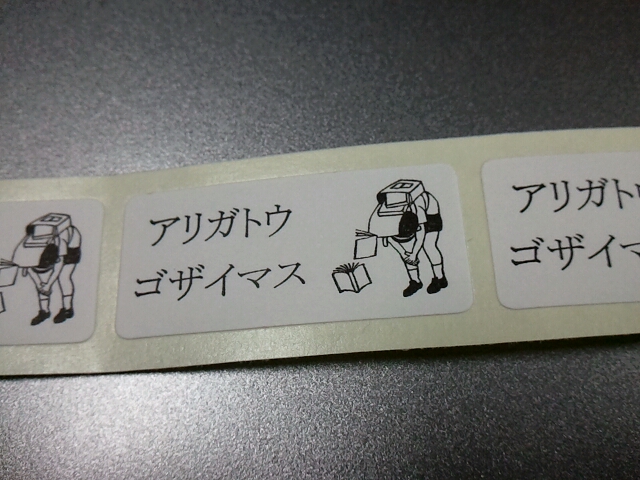 アリガトウ
ゴザイマス
アリガトウ
ゴザイマ